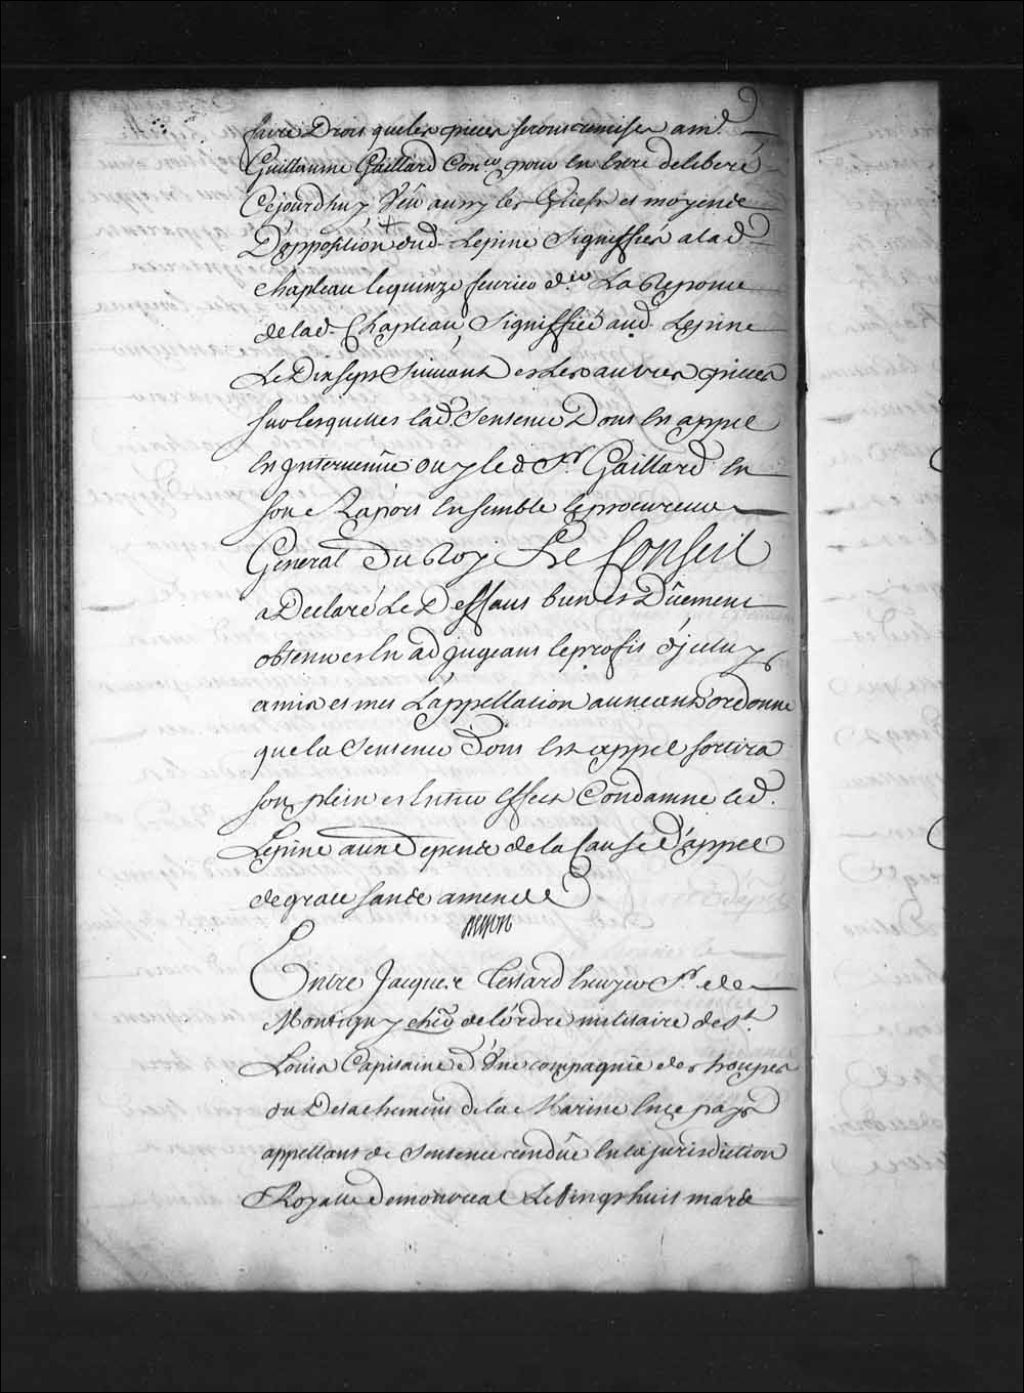 faire Droit que les pieces seront remises a m.e
Guillaume Gaillard Con.er pour en estre deliberé
Cejourdhuy Veu aussy les Griefs et moyens
D'opposition dud. Lepine Signiffiés a lad.
Chapleau le quinze feurier d.er La Reponse
de lad. Chapleau, Signiffiée aud. Lepine
Le Dixsept Suiuant et Les autres pieces
sur lesquelles lad. Sentence Dont En appel
En Interuenüe ouy led. Sr. Gaillard En
son Raport Ensemble le procureur
General Du Roy Le Conseil
a Declaré Le Deffaut bien et Dûement
obtenu et En adjugeant le profit d'jceluy
a mis et met L'appellation au neant ordonne
que la Sentence Dont Est appel sortira
son plein et Entier Effect Condamne led.
Lepine aux Depens de la Cause d'appel
de grace sans amende

Entre Jacques Testard Escuyer Sr. de
Montigny cheer. de l'ordre militaire de St.
Louis Capitaine d'Vne compagnie des troupes
du Detachement de la Marine En ce pays
appellant de Sentence rendüe En la jurisdiction
Royalle de monreal Le Vingt huit mars